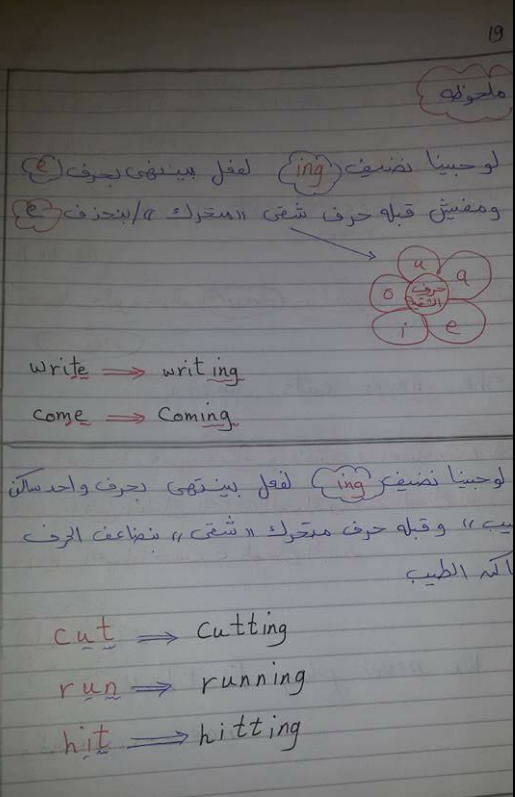 19
ملحوظه
لو حبينا نضيف ing لفعل بينتهى بحرف e
ومفيش قبله حرف شقى "متحرك"/بنحذف e
u
o a
حرف
i e
write → writing
come → Coming
لو حبينا نضيف ing لفعل بينتهى بحرف واحد ساكن
وقبله حرف متحرك "شقى" بنضاعف الحرف
الطيب
cut ⇒ Cutting
run ⇒ running
hit ⇒ hitting